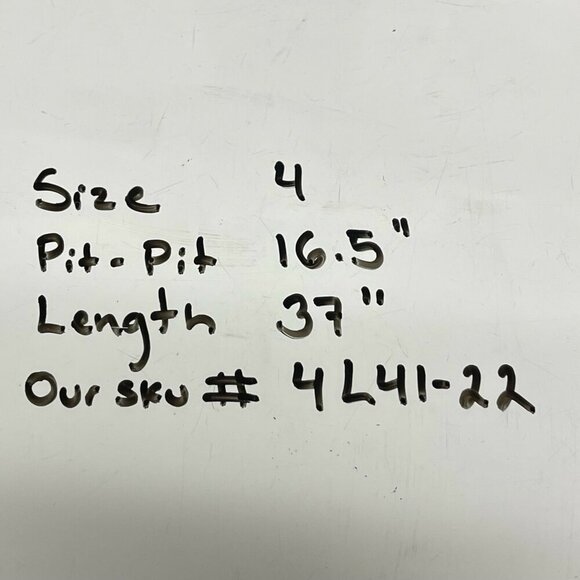 Size 4
Pit-Pit 16.5"
Length 37"
Our sku # 4L41-22